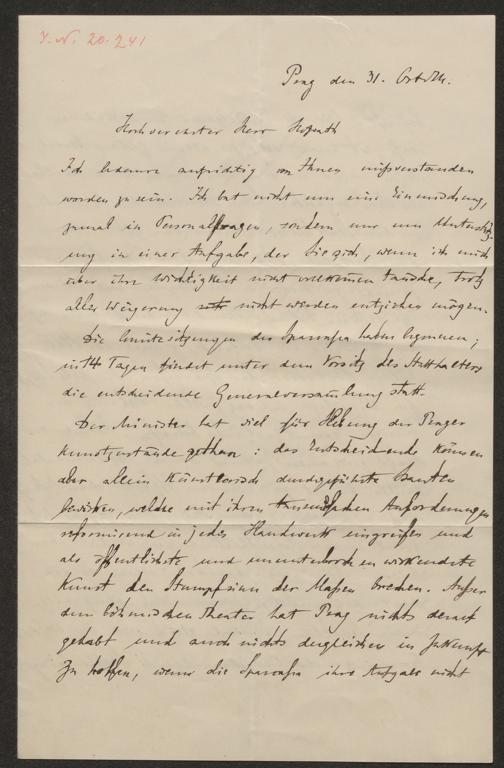 J. N. 20.241
Prag den 31.
Hochverehrter Herr Hofrath
Ich bedaure aufrichtig von Ihnen mißverstanden
worden zu sein. Ich bat nicht um eine Einmischung,
zumal in Personalfragen, sondern nur um Unterstütz-
ung in einer Aufgabe, der Sie sich, wenn ich mich
über ihre Wichtigkeit nicht vollkommen täusche, trotz
aller Weigerung nicht würden entziehen mögen.
Die der Sparcassa haben begonnen;
in 14 Tagen findet unter dem Vorsitz des Statthalters
die entscheidende Generalversammlung statt.
Der Minister hat viel für Hebung der Prager
Kunstzustände gethan: das Entscheidende können
aber allein künstlerisch durchgeführte Bauten
bewirken, welche mit ihren tausendfachen Anforderungen
reformirend in jedes Handwerk eingreifen und
als öffentlichste und ununterbrochen wirkendste
Kunst den Stumpfsinn der Maßen brechen. Außer
dem böhmischen Theater hat Prag nichts derart
gehabt und auch nichts dergleichen in Zukunft
zu hoffen, wenn die Sparcassa ihre Aufgabe nicht